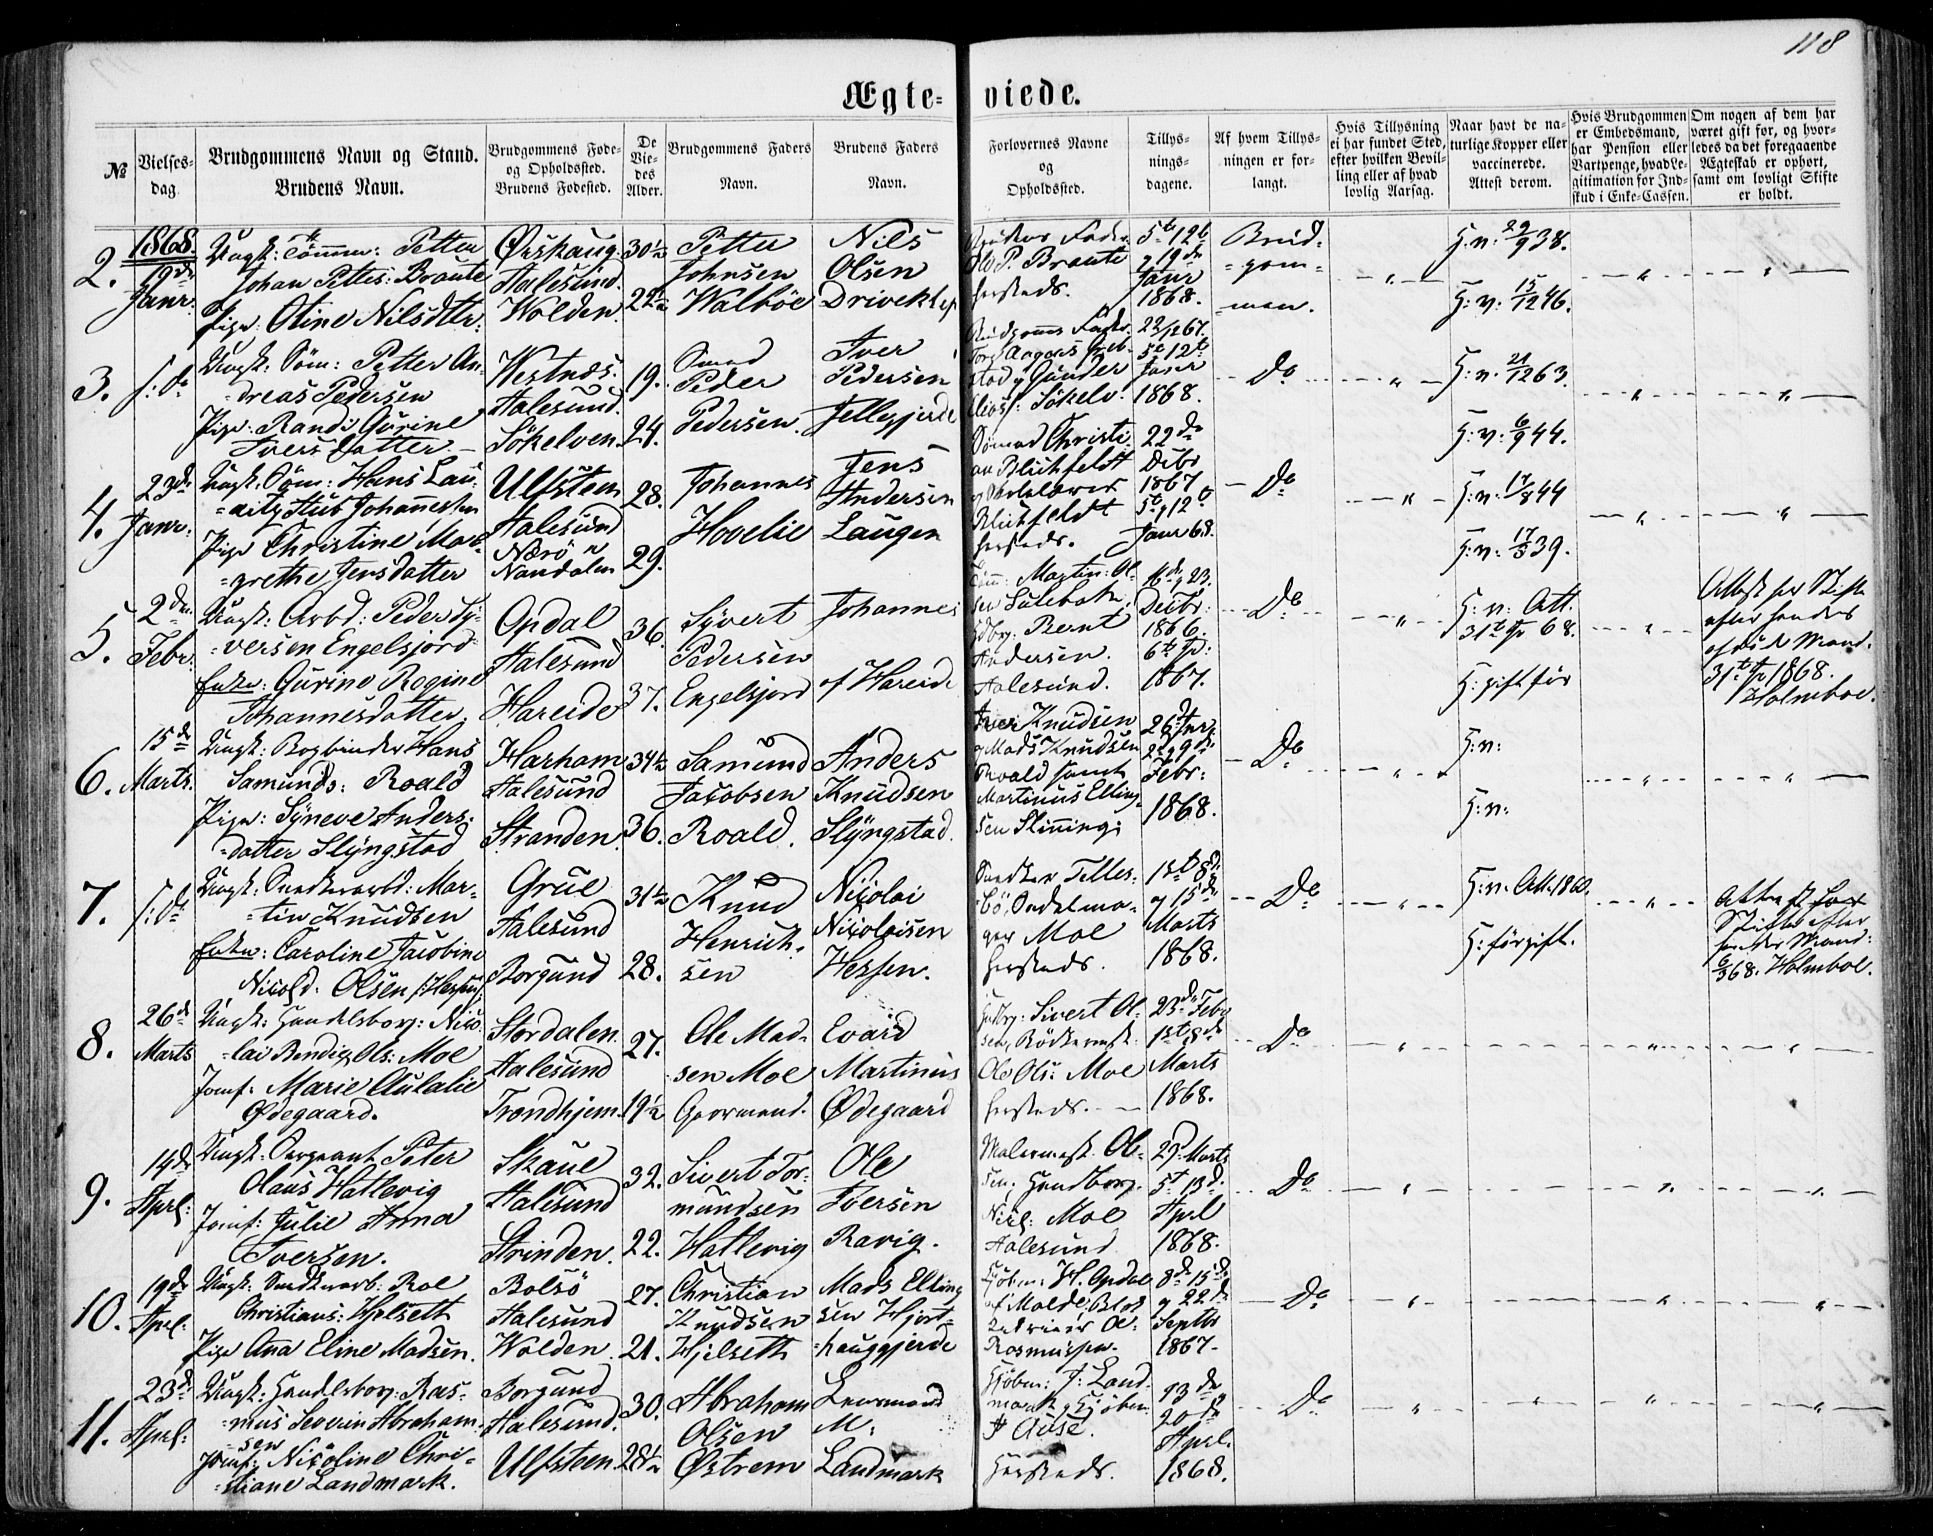 118
Ægte- viede.
№
Vielses-dag.
Brudgommens Navn og Stand.
Brudens Navn.
Brudgommens Føde- og Opholdssted.
Brudens Fødested.
De Viedes Alder.
Brudgommens Faders Navn.
Brudens Faders Navn.
Forlovernes Navne og Opholdssted.
Tillysningsdagene.
Af hvem Tillysningen er forlangt.
Hvis Tillysning ei har fundet Sted, efter hvilken Bevilling eller af hvad lovlig Aarsag.
Naar havt de naturlige Kopper eller vaccinerede. Attest derom.
Hvis Brudgommen er Embedsmand, har Pension eller Vartpenge, hvad Legitimation for Indskud i Enke-Cassen.
Om nogen af dem har været gift før, og hvorledes da det foregaaende Ægteskab er ophørt, samt om lovligt Skifte er holdt.
1868.
2. 19de Janr:
Ungk: Tømm: Petter
Johan Petters: Braute
Pige: Oline Nilsdtr.
Ørskoug.
Aalesund.
Wolden.
30½
22½
Petter
Johnsen
Walbøe
Nils
Olsen
Driveklep
P. Braute
hersteds.
5te 12te
19de
Janr
1868.
Brud-
=gom=
=men.
G. v. 29/9 38.
G: v. 15/12 46.
3. s: D:
Ungk: Søm: Petter An-
=dreas Pedersen
Pige: Randi Gurine
Ivers Datter.
Westnæs.
Aalesund.
Søkelven.
19.
24.
Smed
Peder
Pedersen.
Iver
Pedersen
Jellegjerde
22/12 67.
5te 12te
Janr
1868.
Do
G: v. 21/12 63.
G: v: 6/9 44.
4. 23de Janr:
Ungk. Søm: Hans Lau-
=ritz Stub Johannessen
Pige Christine Mar-
=grethe Jensdatter
Ulfsteen
Aalesund
Nærø
Namdalen
28.
29.
Johannes
Hovelie
Jens
Andersen
Laugen
Christi-
an Blichfeldt
Blichfeldt
hersteds.
22de
Decbr
1867
5te 12te
Janr 68.
Do
G: v: 17/8 44
G: v: 17/3 39.
5. 2den Febr.
Ungk: Arbd: Peder Sy-
=versen Engelsfjord
Enke: Gurine Regine
Johannesdatter.
Opdal
Aalesund
Hareide
36.
37.
Syvert
Pedersen
Engelsfjord
Johannes
af Hareide
Martin: Ol-
sen
Bernt
Andersen.
Aalesund.
Decbr:
1866.
1867.
Do
G: v: Att.
68.
G: gift før
Attest for Skifte
efter hendes
afdøde Mand.
1868.
Holmboe.
6. 15de Marts.
Ungk: Bogbinder Hans
Samunds: Roald
Pige: Syneve Anders-
=datter Slyngstad
Harham
Aalesund
Stranden.
34½
36.
Samund
Jacobsen
Roald.
Anders
Knudsen
Slyngstad.
Iver Knudsen
Mads Knudsen
Roald samt
Martinus Elling-
sen Slinning:
Febr:
1868.
Do
G: v:
G: v:
7. s: D:
Ungk: Snedkerarbd: Mar-
=tin Knudsen
Enke: Caroline Jacobine
Nicold: Olsen f: Hessen
Grue
Aalesund
Borgund
31½
28.
Knud
Henrich-
sen
Nicolai
Nicolaisen
Hessen.
Snedker Telles-
bø, Sadelma-
ger Moe
hersteds.
1ste 8de
15de
Marts
1868.
Do
G: v. Att. 1860.
G: før gift.
Attest for
Skifte efter
hendes Mand:
6/3 68. Holmboe.
8. 26de Marts
Ungk: Handelsborg: Nico-
=lai Bendix Ols: Moe
Jomf: Marie Eulalie
Ødegaard.
Stordalen.
Aalesund
Trondhjem.
27.
19½
Ole Mad-
sen Moe
Gaarmand.
Edvard
Martinus
Ødegaard
Sivert Ol-
sen, Bødkermst:
Ole Ols: Moe
hersteds.
23de Febr
1ste 8de
Marts
1868.
Do
9. 14de Aprl:
Ungk. Sergeant Peter
Olaus Hatlevig
Jomf: Julie Anna
Iversen.
Skaue
Aalesund
Strinden.
32.
22.
Sivert Tor-
mundsen
Hatlevig
Ole
Iversen
Ravig.
Malermest. Ol-
sen, Handborg.
Nicl: Moe
Aalesund
29: Marts
5te 13de
Aprl
1868.
Do
10. 19de Aprl:
Ungk: Snedkerarb: Roe
Christians: Hjelseth
Pige Ana Eline Madsen.
Bolsø
Aalesund
Wolden.
27.
21.
Christian
Knudsen
Hjelseth
Mads Elling
sen Hjort-
hauggjerde
Kjøbm: H. Opdal
af Molde,
Rasmussen.
8de 15de
22de
Septbr
1867.
Do
11. 23de Aprl:
Ungk: Handelsborg: Ras-
=mus Severin Abraham-
sen
Jomf: Nicoline Chri-
=stiane Landmark.
Borgund
Aalesund.
Ulfsteen.
30.
28½
Abraham
Olsen
Østrem
Leensmand
M:
Landmark
Kjøbm: J: Land-
mark, Kjøbm:
Ause.
Hersteds.
13de
20de
Aprl.
1868.
Do